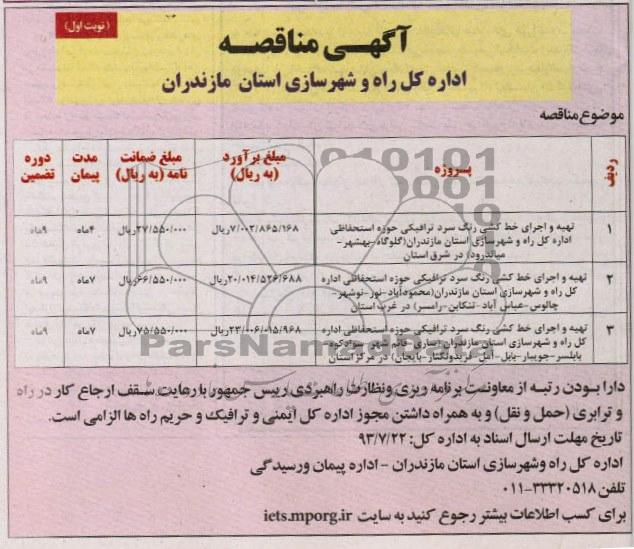 (نوبت اول)
آگهی مناقصه
اداره کل راه و شهرسازی استان مازندران
موضوع مناقصه
ردیف پـــروژه مبلغ برآورد (به ریال) مبلغ ضمانت نامه (به ریال) مدت پیمان دوره تضمین
۱ تهیه و اجرای خط کشی رنگ سرد ترافیکی حوزه استحفاظی ۷/۰۰۲/۸۶۵/۱۶۸ریال ۲۷/۵۵۰/۰۰۰ریال ۴ماه ۹ماه
اداره کل راه و شهرسازی استان مازندران(گلوگاه-بهشهر-
میاندرود) در شرق استان
۲ تهیه و اجرای خط کشی رنگ سرد ترافیکی حوزه استحفاظی اداره ۲۰/۰۱۴/۵۲۶/۶۸۸ریال ۶۶/۵۵۰/۰۰۰ریال ۷ماه ۹ماه
کل راه و شهرسازی استان مازندران(محمودآباد-نور-نوشهر-
چالوس-عباس آباد-تنکابن-رامسر) در غرب استان
۳ تهیه و اجرای خط کشی رنگ سرد ترافیکی حوزه استحفاظی اداره ۲۳/۰۰۶/۰۱۵/۹۶۸ریال ۷۵/۵۵۰/۰۰۰ریال ۷ماه ۹ماه
کل راه و شهرسازی استان مازندران (ساری-قائم شهر-سوادکوه
بابلسر-جویبار-بابل-آمل-فریدونکنار-) در مرکز استان
ParsNamad
دارا بودن رتبه از معاونت برنامه ریزی و نظارت راهبردی رییس جمهور با رعایت سقف ارجاع کار در راه
و ترابری (حمل و نقل) و به همراه داشتن مجوز اداره کل ایمنی و ترافیک و حریم راه ها الزامی است.
تاریخ مهلت ارسال اسناد به اداره کل: ۹۳/۷/۲۲
اداره کل راه وشهرسازی استان مازندران - اداره پیمان ورسیدگی
تلفن ۳۳۳۲۰۵۱۸-۰۱۱
برای کسب اطلاعات بیشتر رجوع کنید به سایت iets.mporg.ir